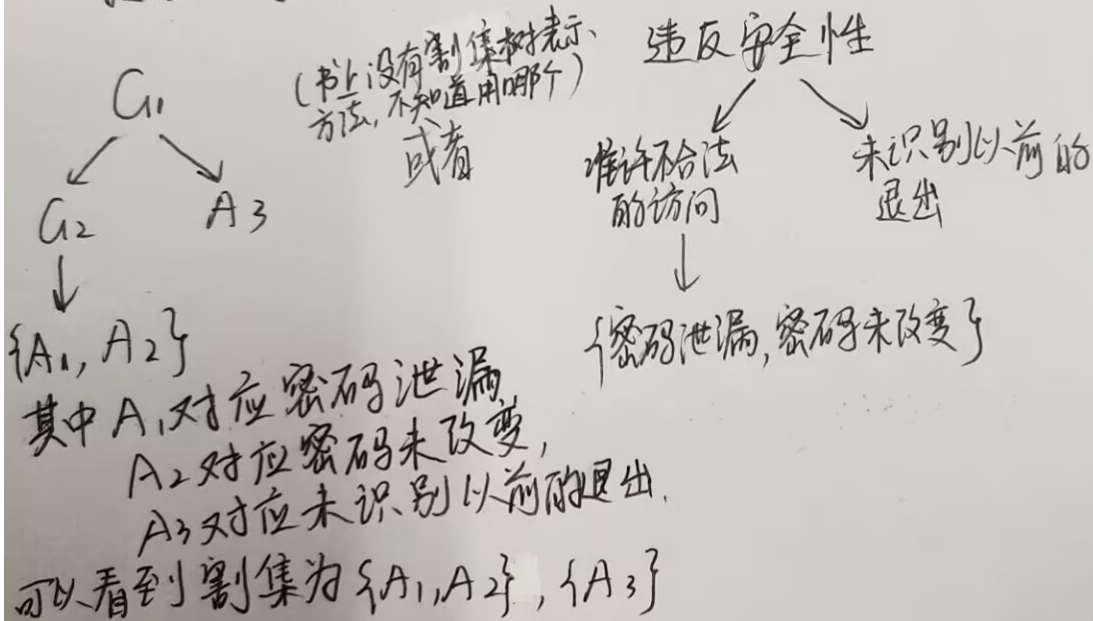 G₁
G₂ A3
{A₁, A₂}
(书上没有割集树表示
方法,不知道用哪个)
或者
违反安全性
准许不合法
的访问
未识别以前的
退出
{密码泄漏,密码未改变}
其中A₁对应密码泄漏,
A₂对应密码未改变,
A₃对应未识别以前的退出.
可以看到割集为{A₁,A₂},{A₃}